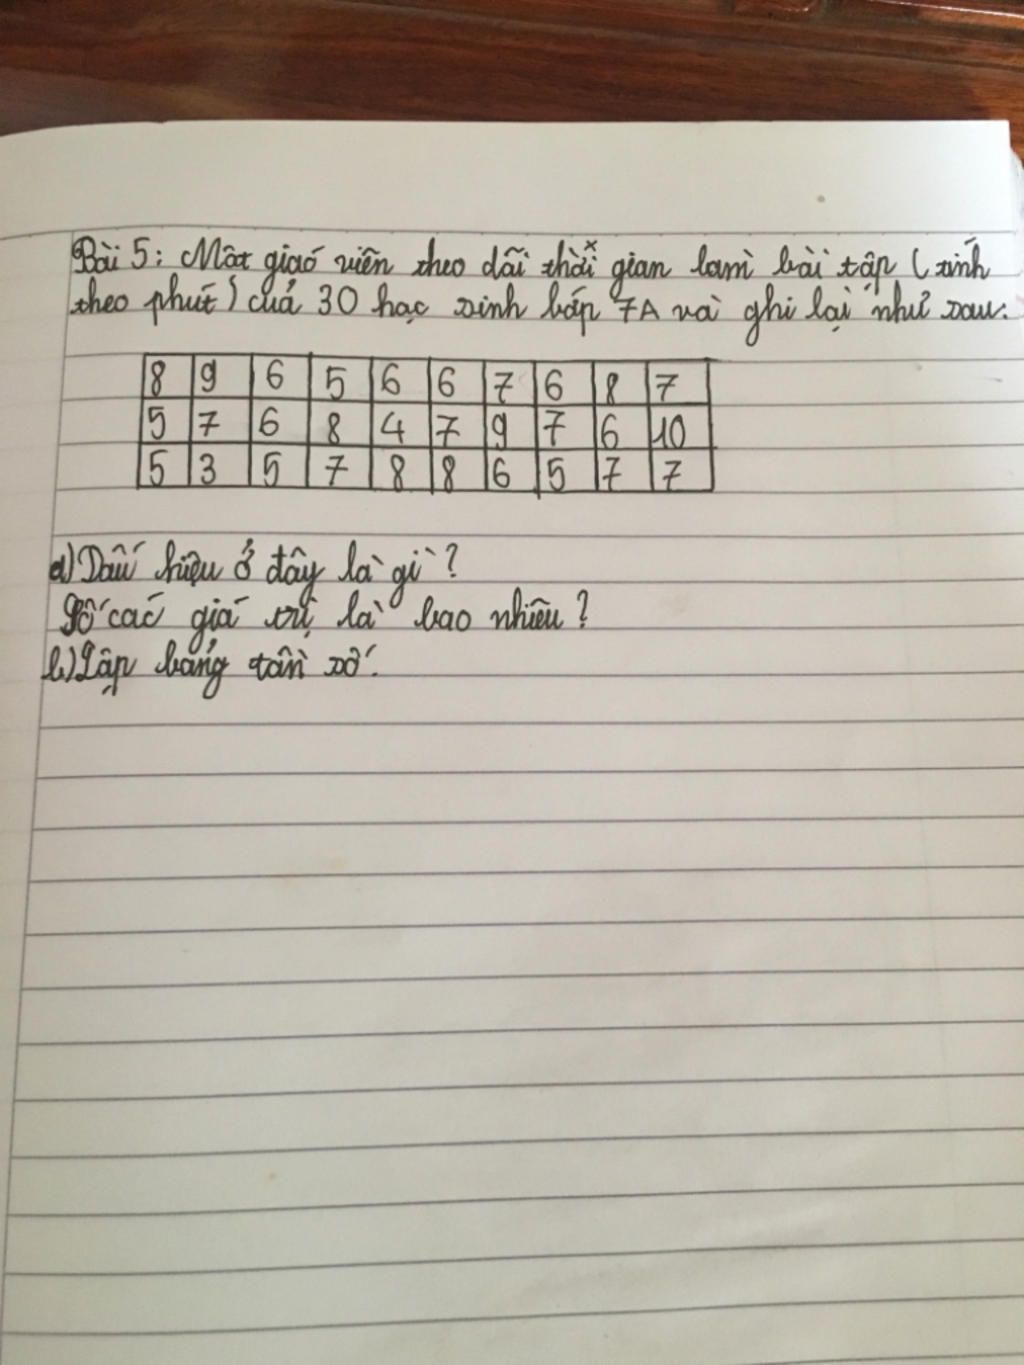 Bài 5: Một giáo viên theo dõi thời gian làm bài tập (tính
theo phút) của 30 học sinh lớp 7A và ghi lại như sau:
8 9 6 5 6 6 7 6 8 7
5 7 6 8 4 7 9 7 6 10
5 3 5 7 8 8 6 5 7 7
a) Dấu hiệu ở đây là gì?
Số các giá trị là bao nhiêu?
b) Lập bảng tần số.